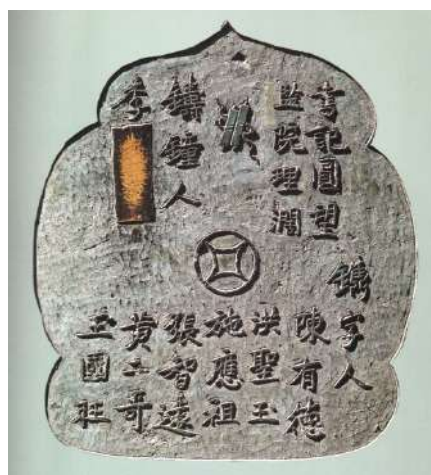 書記圓望
監院理澗
鑄鐘人
李
鐫字人
陳有德
洪聖玉
施應祖
張智遠
黄士哥
王國旺